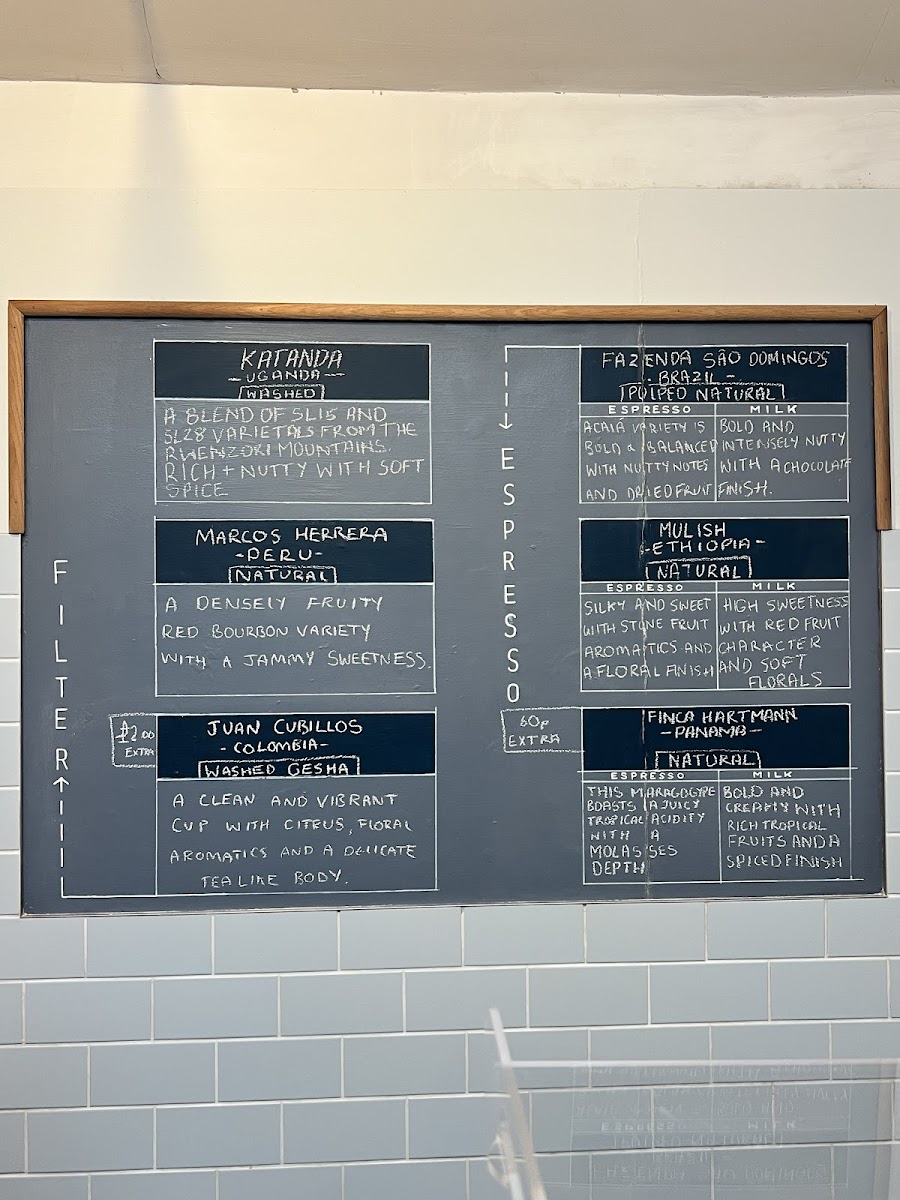 FILTER
KATANDA
-UGANDA-
WASHED
A BLEND OF SL15 AND
SL28 VARIETALS FROM THE
RWENZORI MOUNTAINS.
RICH + NUTTY WITH SOFT
SPICE
MARCOS HERRERA
-PERU-
NATURAL
A DENSELY FRUITY
RED BOURBON VARIETY
WITH A JAMMY SWEETNESS.
£2.00
EXTRA
JUAN CUBILLOS
-COLOMBIA-
WASHED GESHA
A CLEAN AND VIBRANT
CUP WITH CITRUS, FLORAL
AROMATICS AND A DELICATE
TEA LIKE BODY.
ESPRESSO
FAZENDA SÃO DOMINGOS
-BRAZIL-
PULPED NATURAL
ESPRESSO
ACAIÁ VARIETY IS
BOLD & BALANCED
WITH NUTTY NOTES
AND DRIED FRUIT
MILK
BOLD AND
INTENSELY NUTTY
WITH A CHOCOLATE
FINISH.
MULISH
-ETHIOPIA-
NATURAL
ESPRESSO
SILKY AND SWEET
WITH STONE FRUIT
AROMATICS AND
A FLORAL FINISH
MILK
HIGH SWEETNESS
WITH RED FRUIT
CHARACTER
AND SOFT
FLORALS
60p
EXTRA
FINCA HARTMANN
-PANAMA-
NATURAL
ESPRESSO
THIS MARAGOGYPE
BOASTS A JUICY
TROPICAL ACIDITY
WITH A
MOLASSES
DEPTH
MILK
BOLD AND
CREAMY WITH
RICH TROPICAL
FRUITS AND A
SPICED FINISH